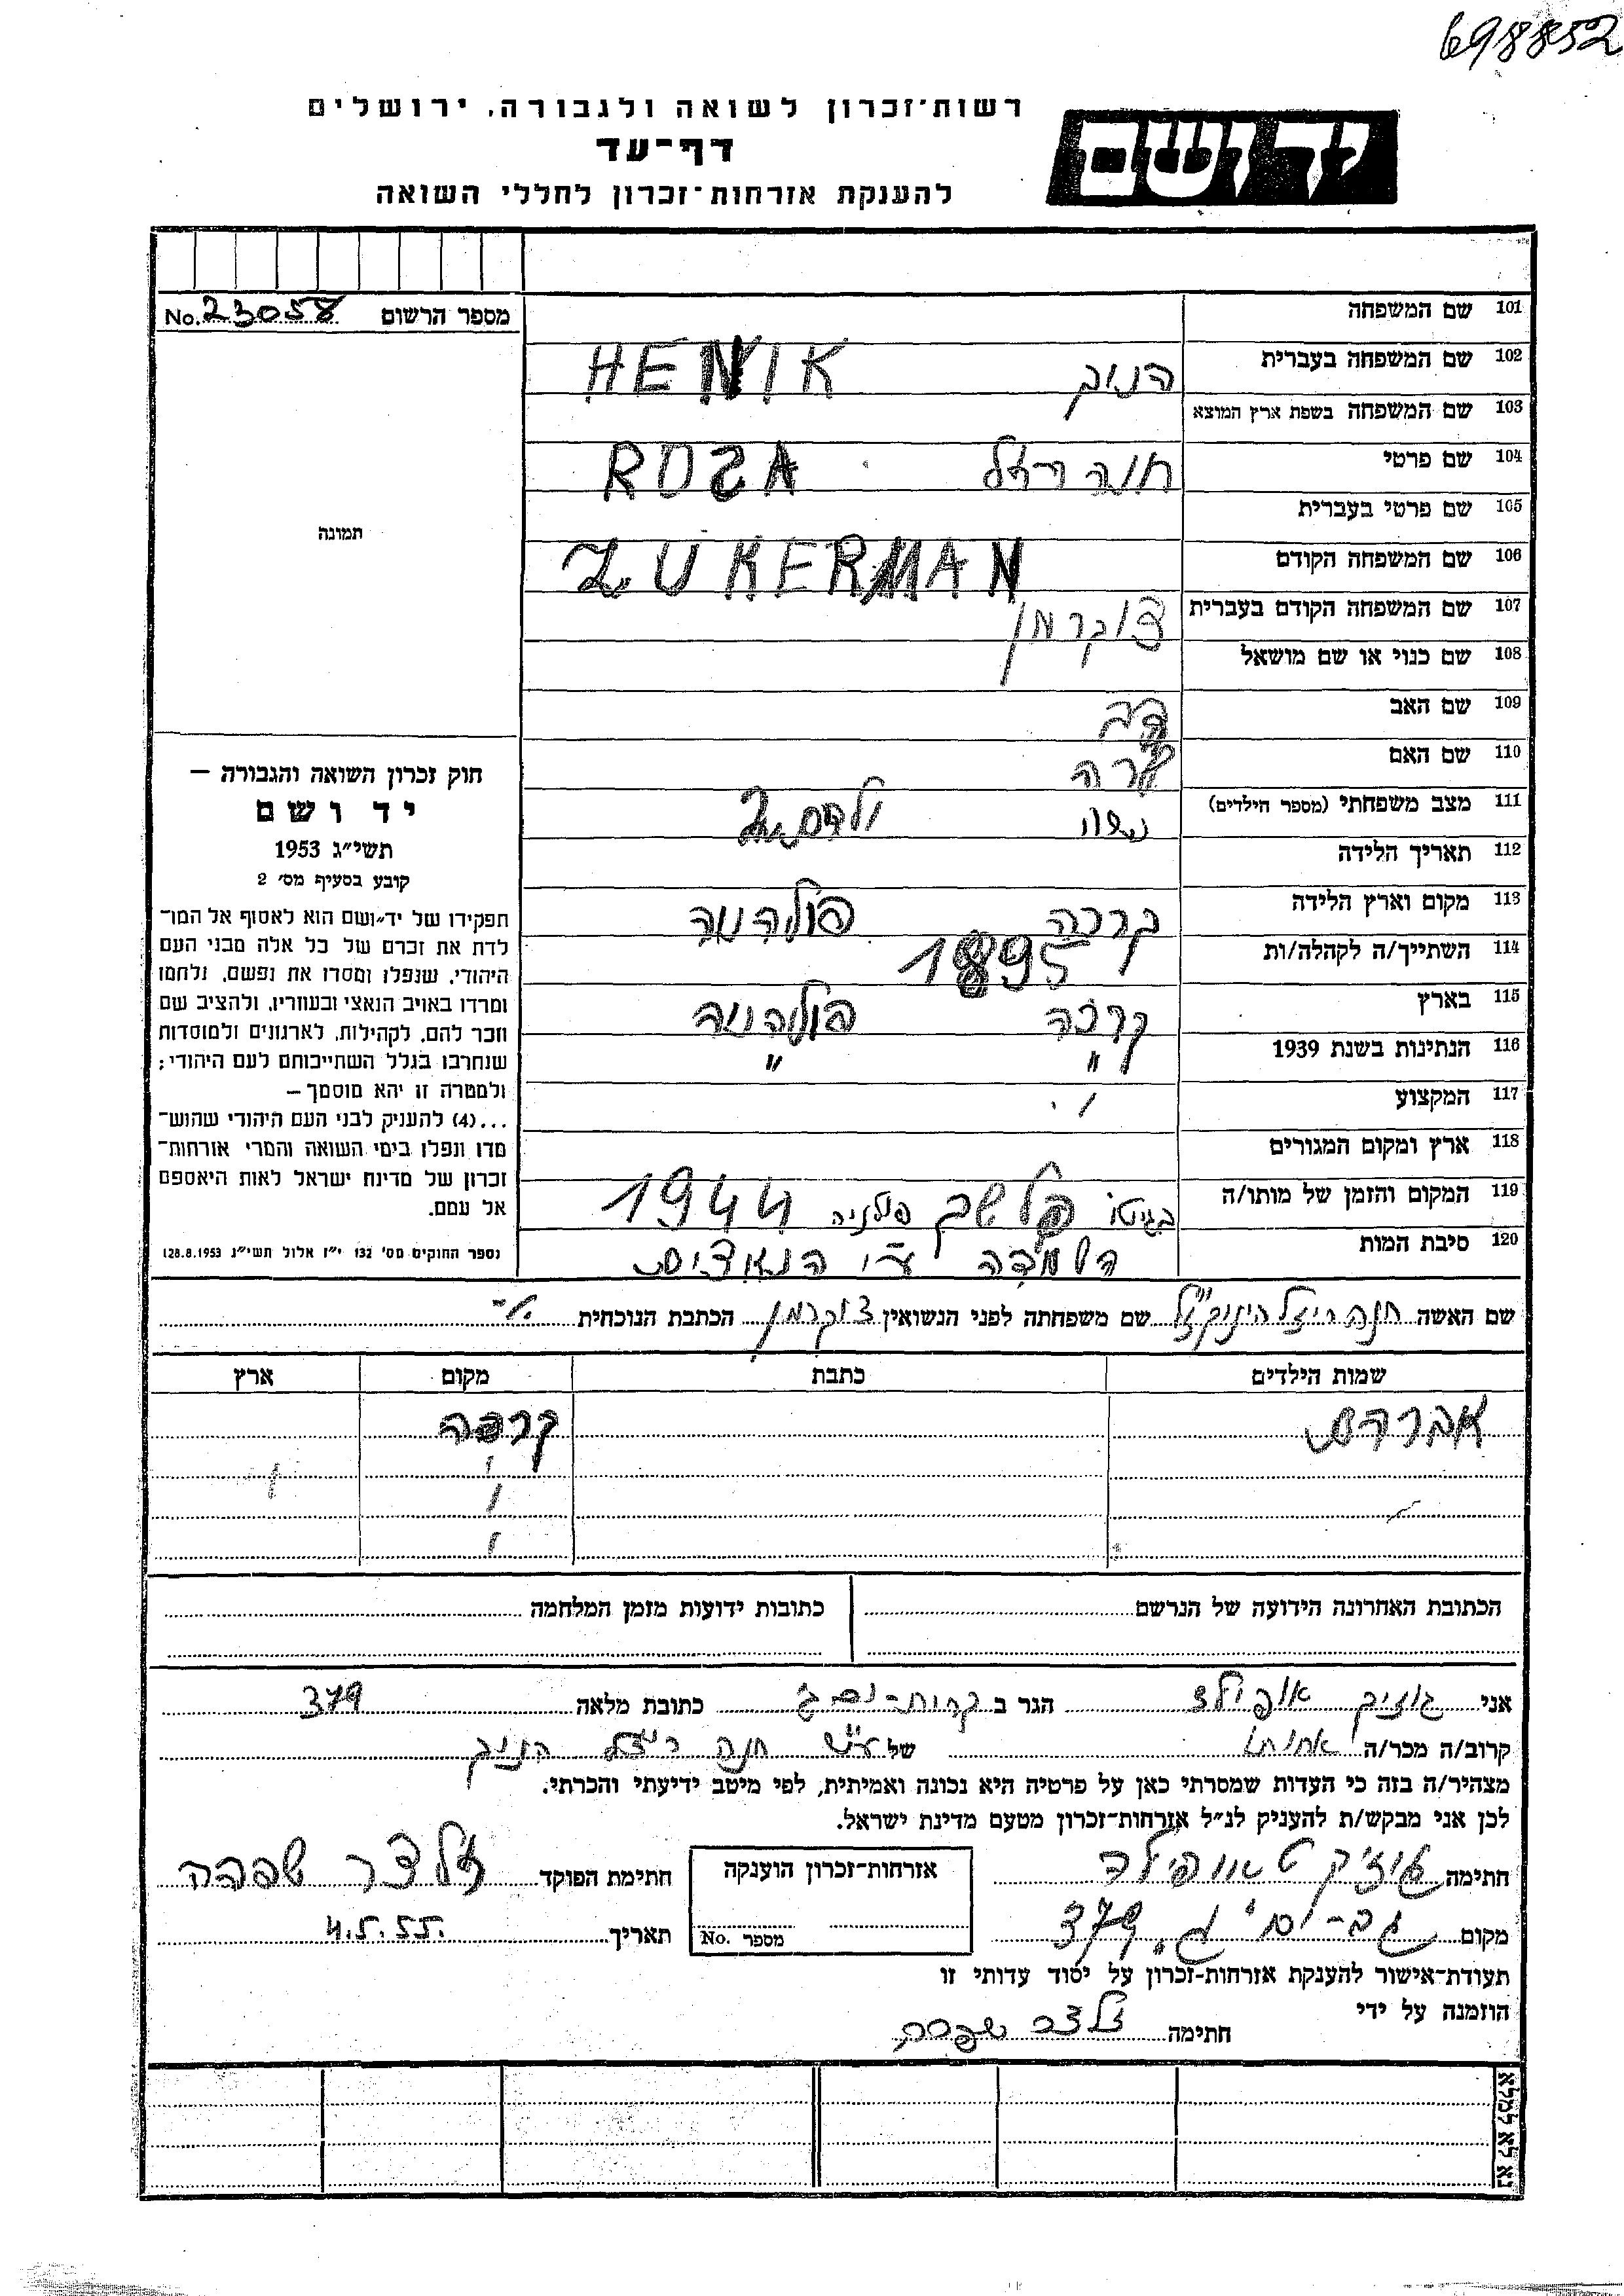 698852
רשות־זכרון לשואה ולגבורה, ירושלים
יד ושם
דף־עד
להענקת אזרחות־זכרון לחללי השואה
101 שם המשפחה
מספר הרשום No. 23058
102 שם המשפחה בעברית הניק HENIK
103 שם המשפחה בשפת ארץ המוצא
104 שם פרטי חנה רזל ROZA
105 שם פרטי בעברית
תמונה
106 שם המשפחה הקודם ZUKERMAN
107 שם המשפחה הקודם בעברית צוקרמן
108 שם כנוי או שם מושאל
109 שם האב דב
110 שם האם שרה
111 מצב משפחתי (מספר הילדים) נשוי 2
112 תאריך הלידה
113 מקום וארץ הלידה קרקה פולניה
114 השתייך/ה לקהלה/ות 1895
115 בארץ קרקה פולניה
116 הנתינות בשנת 1939 " "
117 המקצוע
118 ארץ ומקום המגורים
119 המקום והזמן של מותו/ה בגיטו פלשב פולניה 1944
120 סיבת המות השמדה ע"י הנאצים
חוק זכרון השואה והגבורה —
יד ושם
תשי״ג 1953
קובע בסעיף מס׳ 2
תפקידו של יד־ושם הוא לאסוף אל המו־
לדת את זכרם של כל אלה מבני העם
היהודי, שנפלו ומסרו את נפשם, נלחמו
ומרדו באויב הנאצי ובעוזריו, ולהציב שם
וזכר להם, לקהילות, לארגונים ולמוסדות
שנחרבו בגלל השתייכותם לעם היהודי;
ולמטרה זו יהא מוסמך—
...(4) להעניק לבני העם היהודי שהוש־
מדו ונפלו בימי השואה והמרי אזרחות־
זכרון של מדינת ישראל לאות היאספם
אל עמם.
נספר החוקים מס׳ 132 י״ז אלול תשי״ג 28.8.1953)
שם האשה חנה ריזל הניק ז"ל שם משפחתה לפני הנשואין צוקרמן הכתבת הנוכחית
שמות הילדים כתבת מקום ארץ
אברהם קרקה
הכתובת האחרונה הידועה של הנרשם
כתובות ידועות מזמן המלחמה
אני הגר ב כתובת מלאה 379
קרוב/ה מכר/ה אחותו של חנה ריזל הניק
מצהיר/ה בזה כי העדות שמסרתי כאן על פרטיה היא נכונה ואמיתית, לפי מיטב ידיעתי והכרתי.
לכן אני מבקש/ת להעניק לנ״ל אזרחות־זכרון מטעם מדינת ישראל.
חתימה
אזרחות־זכרון הוענקה
חתימת הפוקד זלצר שפרה
מקום 379
מספר No.
תאריך 4.5.55.
תעודת־אישור להענקת אזרחות־זכרון על יסוד עדותי זו
הוזמנה על ידי
חתימה זלצר שפרה
נא לא למלא